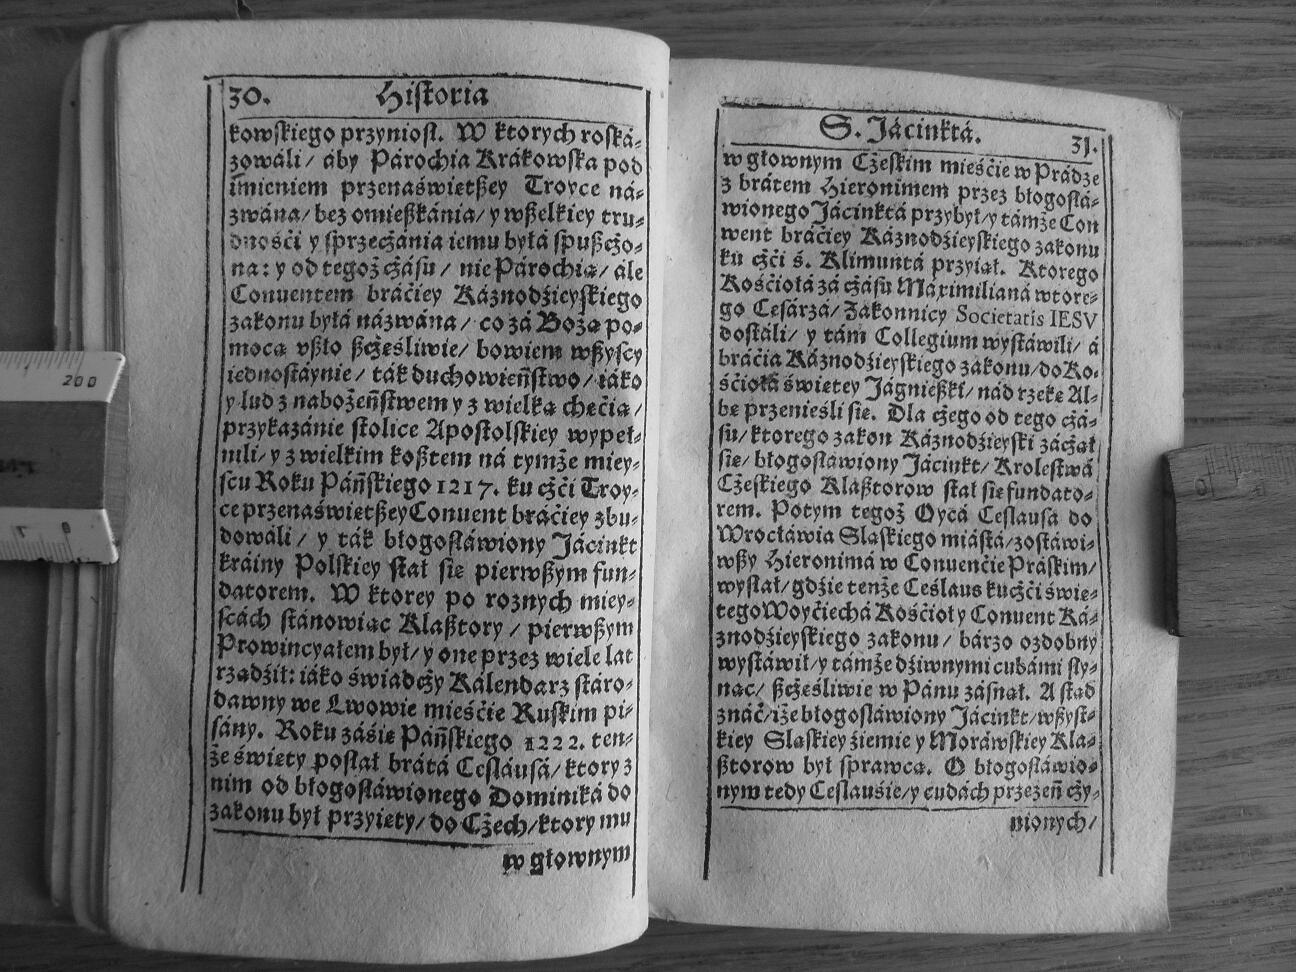 30. Historia
kowſkiego przynioſł. W ktorych roſká-
zowáli/ áby Párochia Krákowſka pod
imieniem przenaświetßey Troyce ná-
zwána/ bez omießkánia/ y wßelkiey tru-
dnośći y ſprzecżánia iemu byłá ſpußcżo-
na: y od tegoż cżáſu/ nie Párochia/ ále
Conuentem bráćiey Káznodźieyſkiego
zakonu byłá názwána/ co zá Bożą po-
mocą vßło ßcżeśliwie/ bowiem wßyſcy
iednoſtáynie/ ták duchowieńſtwo/ iáko
y lud z nabożeńſtwem y z wielką chećią/
przykazánie ſtolice Apoſtolſkiey wypeł-
nili/ y z wielkim koßtem ná tymże miey-
ſcu Roku Páńſkiego 1217. ku cżći Troy-
ce przenaświetßey Conuent bráćiey zbu-
dowáli/ y ták błogoſłáwiony Jácinkt
kráiny Polſkiey ſtał ſię pierwßym fun-
datorem. W ktorey po roznych miey-
ſcách ſtánowiąc Klaßtory/ pierwßym
Prowincyałem był/ y one przez wiele lat
rządźił: iáko świadcży Kálendarz ſtáro-
dawny we Lwowie mieśćie Ruſkim pi-
ſány. Roku záśię Páńſkiego 1222. ten-
że święty poſłał brátá Ceſláuſá/ ktory z
nim od błogoſłáwionego Dominiká do
zakonu był przyięty/ do Cżech/ ktory mu
w głownym
S. Jácinktá. 31.
w głownym Cżeſkim mieśćie w Prádze
z brátem Hieronimem przez błogoſłá-
wionego Jácinktá przybył/ y támże Con
went bráćiey Káznodźieyſkiego zakonu
ku cżći ś. Klimuntá przyiął. Ktorego
Kośćiołá zá cżáſu Máximilianá wtore-
go Ceſárzá/ Zakonnicy Societatis IESV
doſtáli/ y tám Collegium wyſtáwili/ á
bráćia Káznodźieyſkiego zakonu/ do Ko-
śćiołá świętey Jágnießki/ nád rzeką Al-
bą przenieśli ſię. Dla cżego od tego cżá-
ſu/ ktorego zakon Káznodźieyſki zácżął
ſię/ błogoſłáwiony Jácinkt/ Kroleſtwá
Cżeſkiego Klaßtorow ſtał ſię fundato-
rem. Potym tegoż Oycá Ceslauſa do
Wrocłáwia Sląſkiego miáſtá/ zoſtáwi-
wßy Hieronimá w Conuenćie Práſkim/
wyſłał/ gdźie tenże Ceślaus ku cżći świe-
tego Woyćiechá Kośćioły Conuent Ká-
znodźieyſkiego zakonu/ bárzo ozdobny
wyſtáwił/ y támże dźiwnymi cudámi ſły-
nąc/ ßcżeśliwie w Pánu záſnął. A ſtąd
znáć/ iże błogoſłáwiony Jácinkt/ wßyſt-
kiey Sląſkiey źiemie y Moráwſkiey Kla-
ßtorow był ſprawcą. O błogoſłáwio-
nym tedy Ceſlauśie/ y cudách przezeń cży-
nionych/
200
0